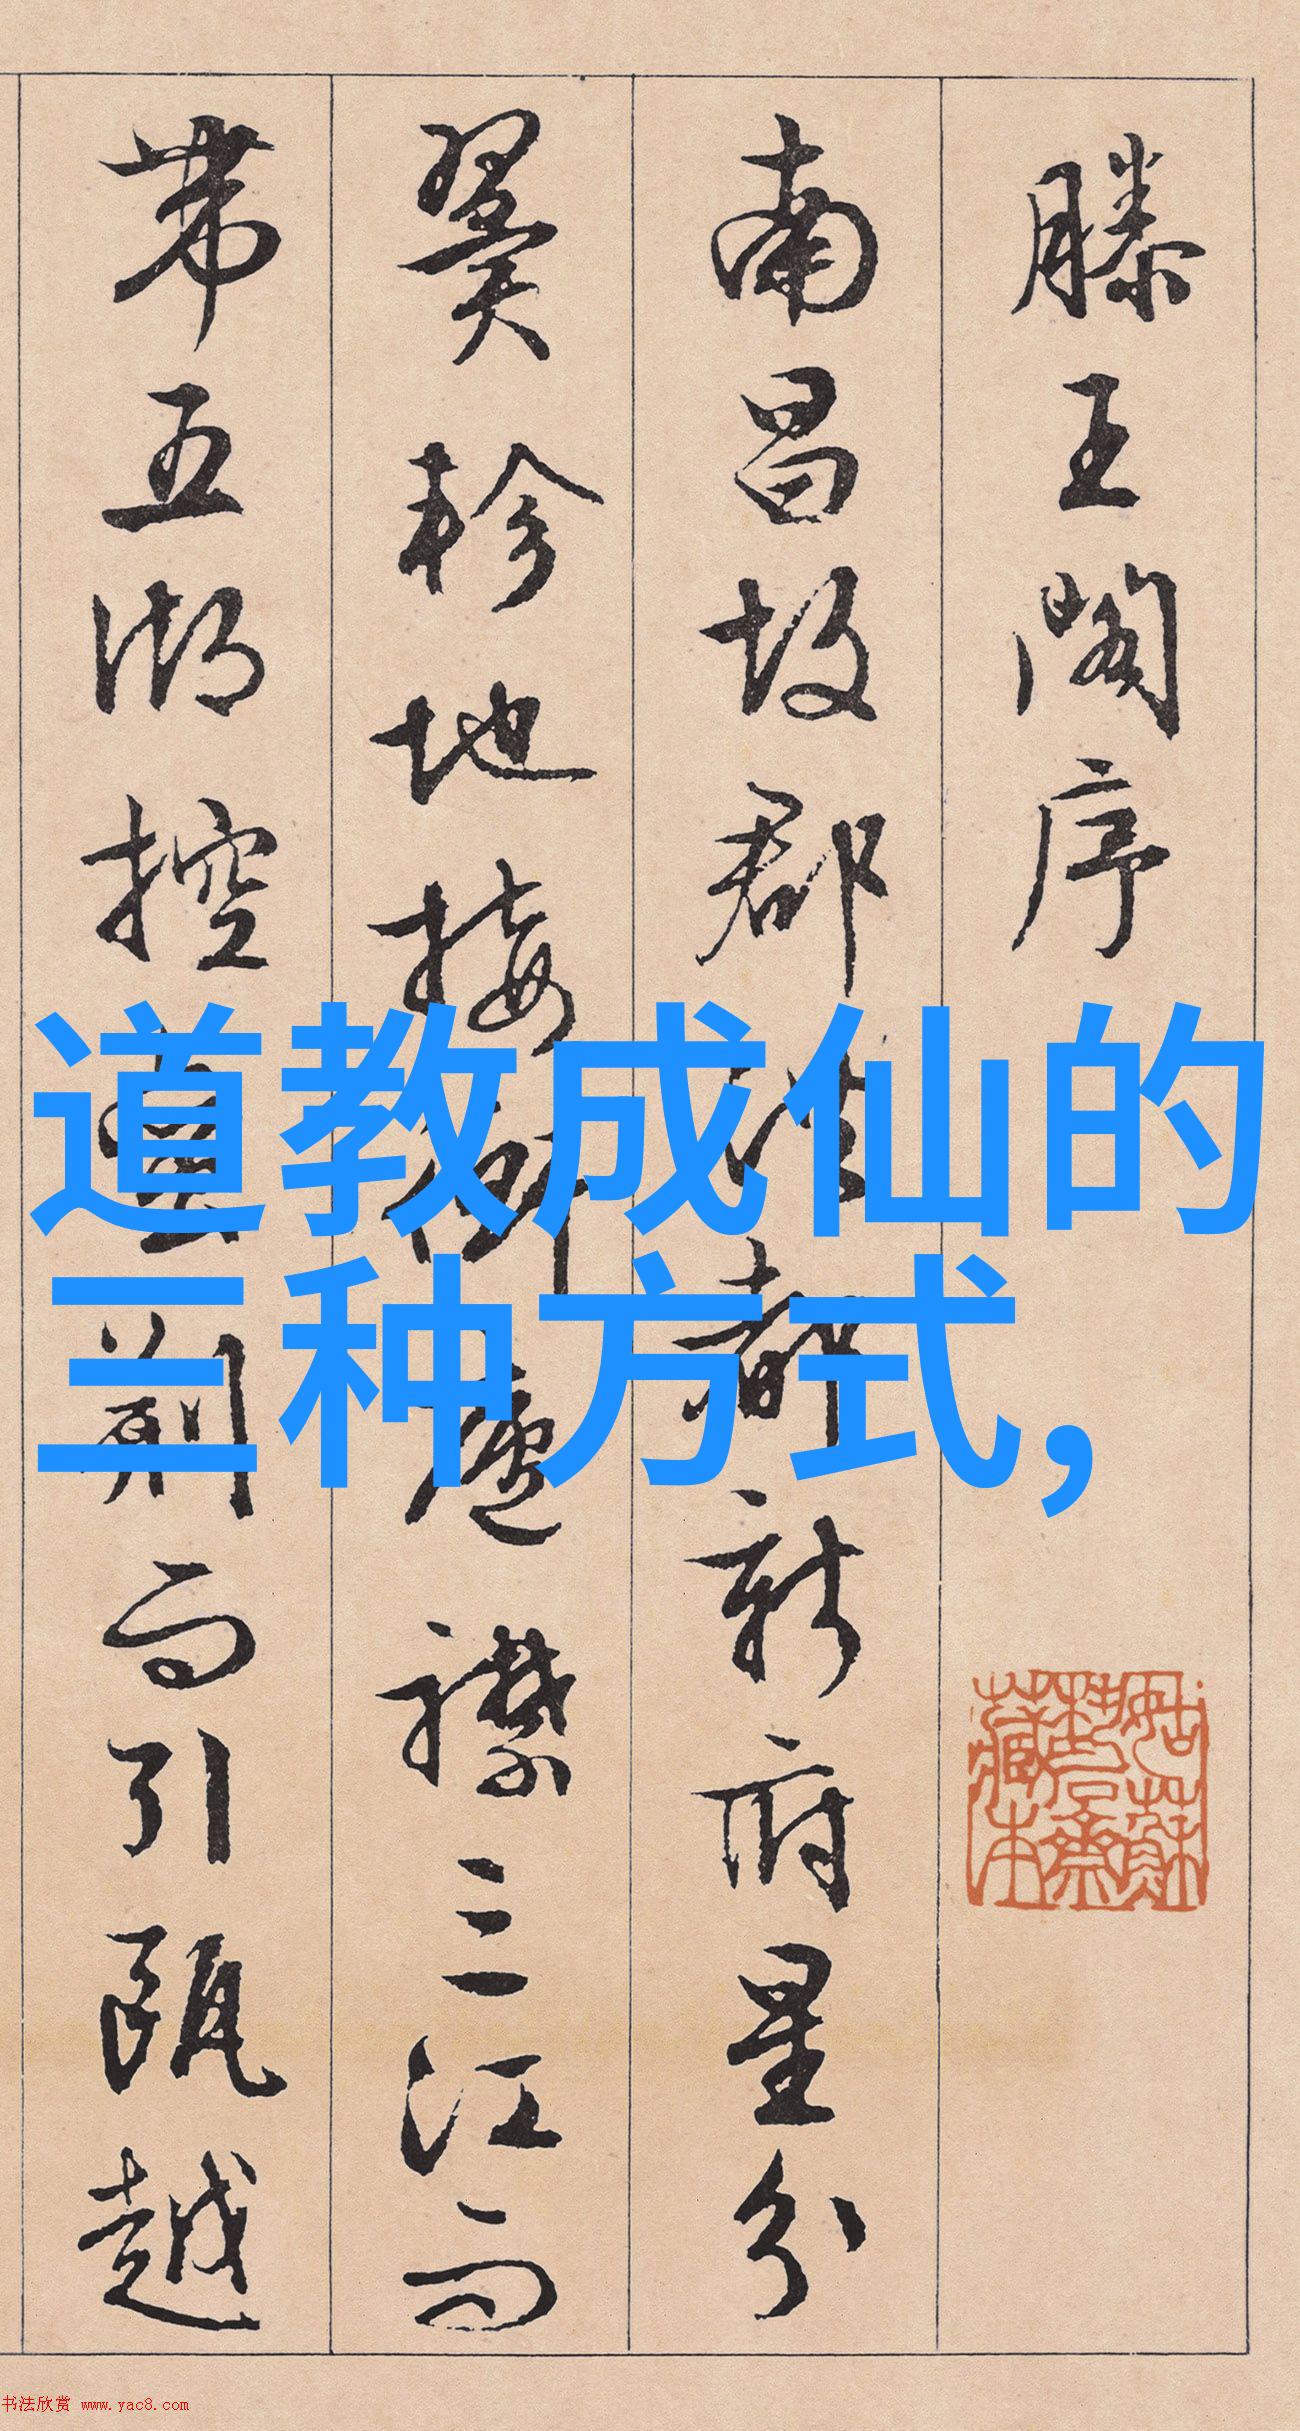 滕王阁序
南昌故郡洪都新府星分
翼轸地接衡庐襟三江而
带五湖控蛮荆而引瓯越
道教成仙的
三种方式，
书法欣赏 www.yac8.com